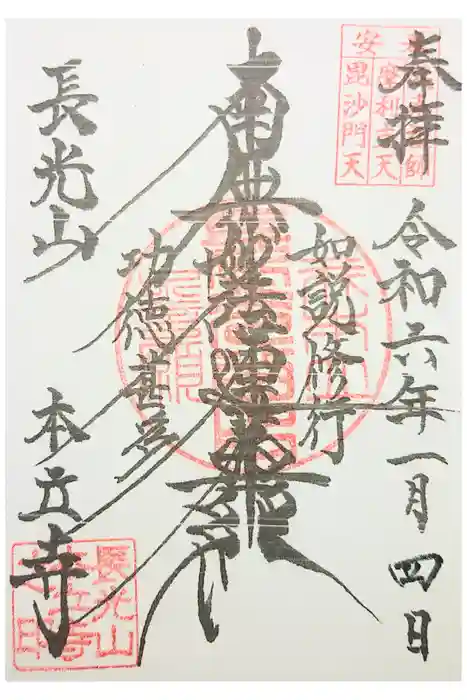 奉拝
令和六年一月四日
如説修行
南無妙法蓮華経
功徳甚多
長光山
本立寺
安
毘沙門天
摩利支天
長光山
本立寺
之印